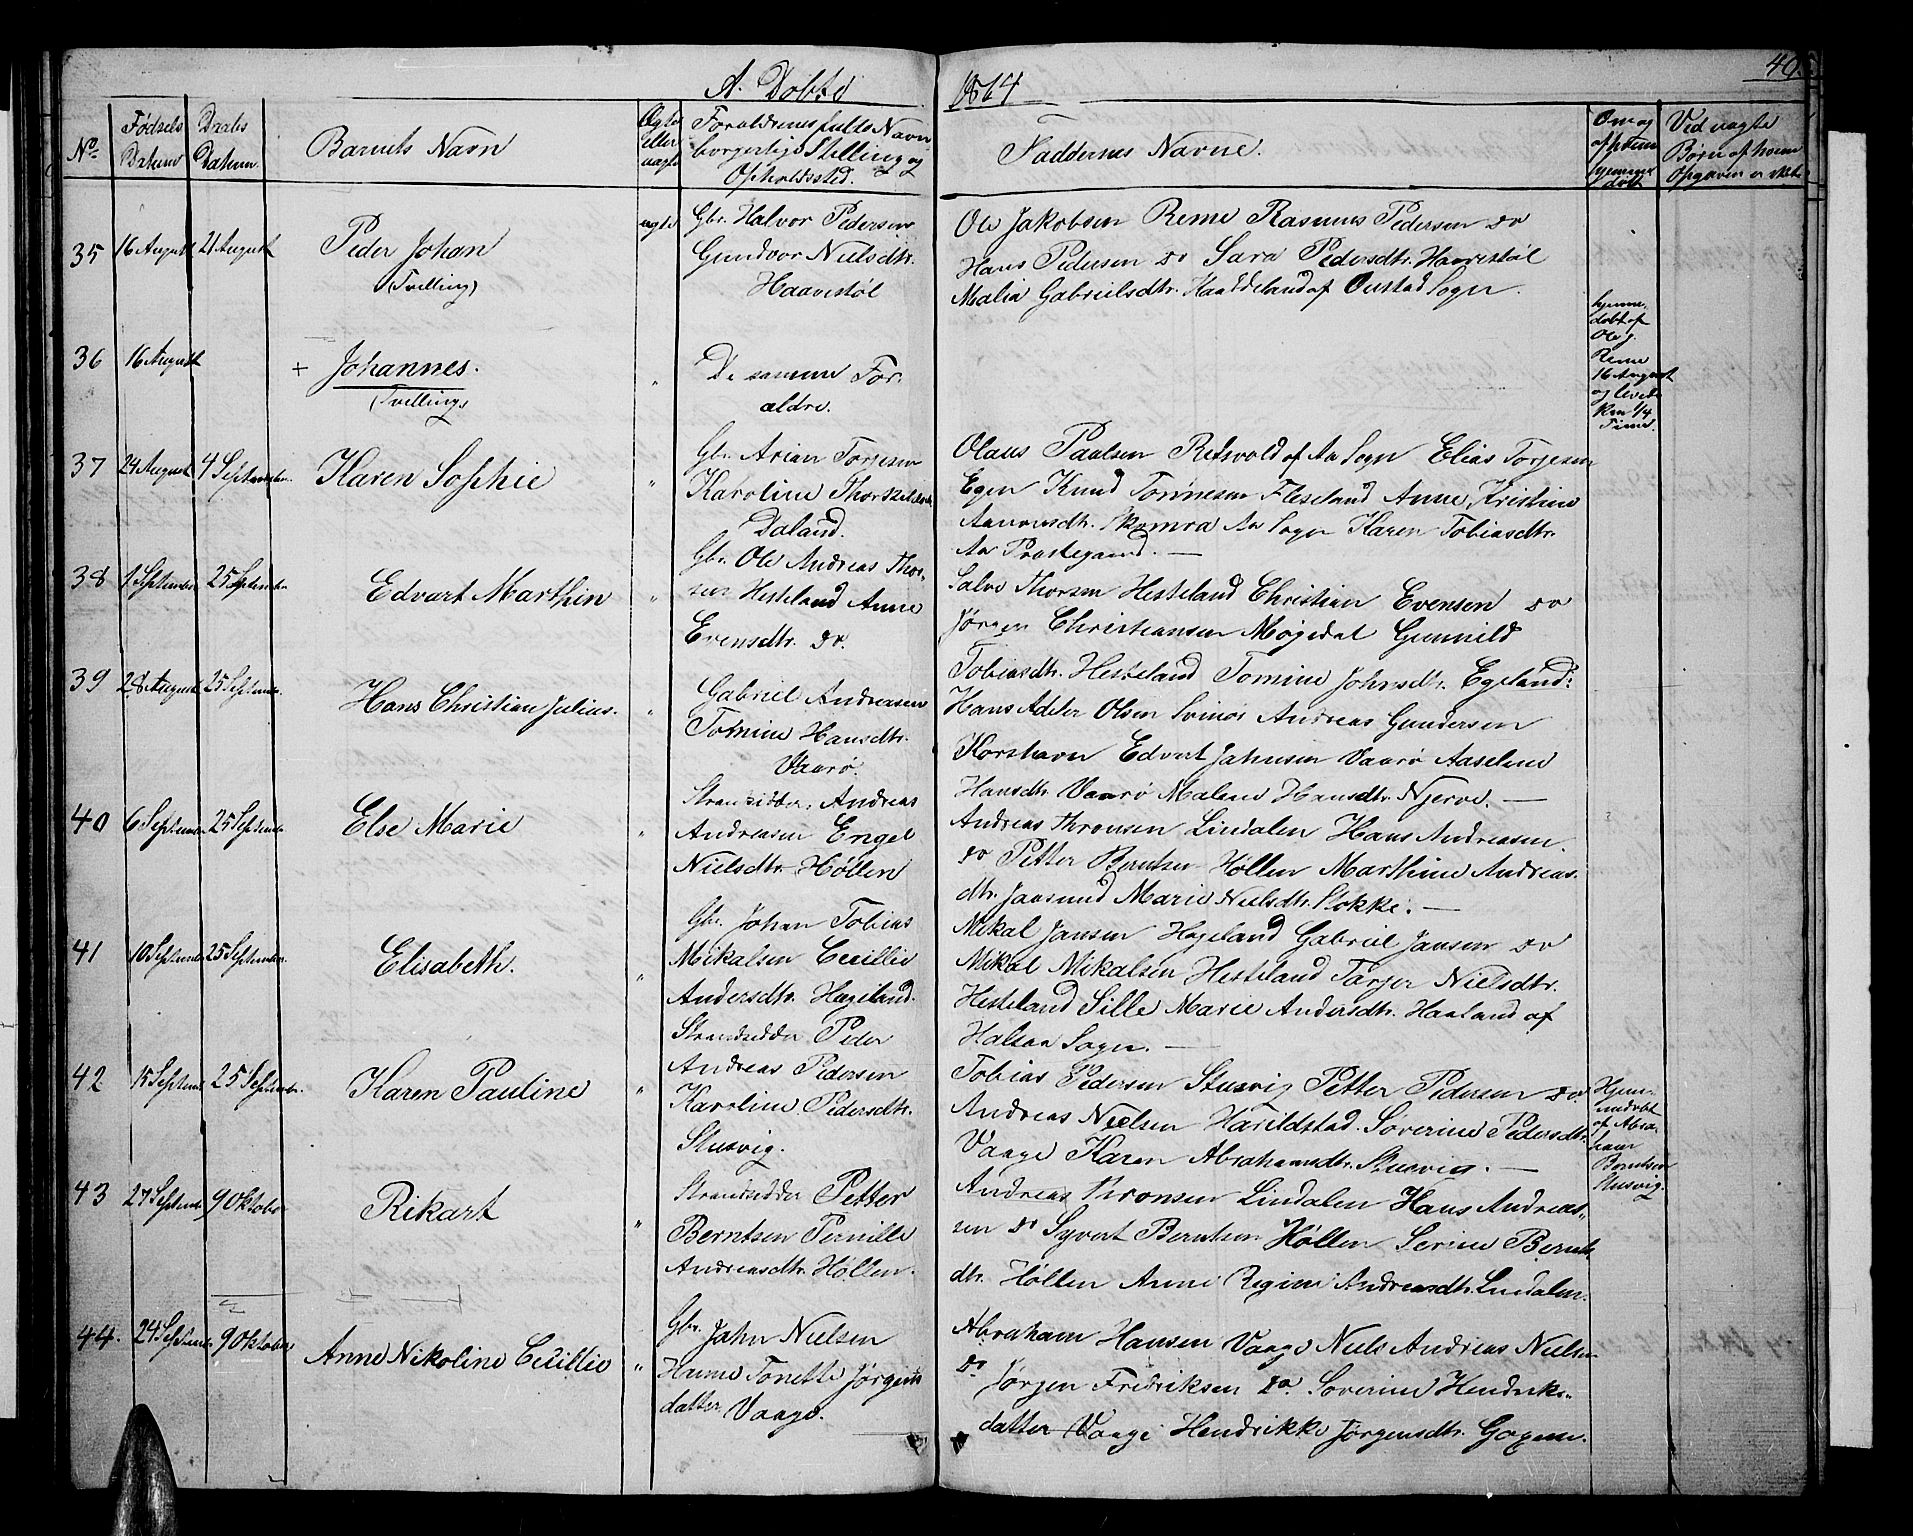 A. Døbte
1864
49.
No.
Fødsels Datum
Daabs Datum.
Barnets Navn
Ægte eller uægte
Forældrenes fulde Navn borgerlige Stilling og Opholdssted.
Faddernes Navne.
Om og af hvem hjemmedøbt
Ved uægte Børn af hvem Opgaven er
35 16 August 21 August
Peder Johan
(Tvilling)
ægte
Gbr. Halvor Pedersen
Gundvor Nielsdtr.
Haavestøl
Ole Jakobsen Reme Rasmus Pedersen do
Hans Pedersen do Sara Pedersdtr. Haavestøl
Malia Gabrielsdtr. Haaddeland af Oustad Sogn.
36 16 August
+ Johannes.
(Tvilling)
"
De samme For-
ældre.
hjemme-
døbt af
Ole J.
Reme
16 August
og levede
kun 1/4
Time.
37 24 August 4 September
Karen Sophie
"
Gbr. Arian Torjesen
Karoline Thorkelsdtr.
Daland.
Olaus Paulsen Redsvold af Aa Sogn Elias Torjesen
Egen Knud Tønnesen Fleseland Anne Kristine
Aanensdtr. Skomra Aa Sogn Karen Tobiasdtr.
Aa Prestegaard. —
38 1 September 25 September
Edvart Marthin
"
Gbr. Ole Andreas Thor-
sen Hesteland Anne
Evensdtr. do.
Salve Thorsen Hesteland Christian Evensen do
Jørgen Christiansen Møgedal Gunnild
Tobiasdtr. Hesteland Tomine Johnsdtr. Egeland.
39 28 August 25 September
Hans Christian Julius.
"
Gabriel Andreasen
Tomine Hansdtr.
Vaarø.
Hans Adeler Olsen Svinør Andreas Gundersen
Korshavn Edvart Jahnsen Vaarø Aaseline
Hansdtr. Vaarø Malene Hansdtr. Njerve. —
40 6 September 25 September
Else Marie
"
Strandsidder, Andreas
Andreasen Engel
Nielsdtr. Høllen
Andreas Thronsen Lindalen Hans Andreasen
do Petter Berntsen Høllen Marthine Andreas-
dtr. Jaasund Marie Nielsdtr. Stokke. —
41 10 September 25 September
Elisabeth.
"
Gbr. Johan Tobias
Mikalsen Cecillie
Andersdtr. Hageland.
Mikal Jansen Hageland Gabriel Jansen do
Mikal Mikalsen Hesteland Tarjer Nielsdtr.
Hesteland Sille Marie Andersdtr. Haaland af
Halsaa Sogn. —
42 15 September 25 September
Karen Pauline
"
Strandsidder Peder
Andreas Pedersen
Karoline Pedersdtr.
Stusvig.
Tobias Pedersen Stusvig Petter Pedersen do
Andreas Nielsen Harildstad. Søverine Pedersdtr.
Vaage Karen Abrahamsdtr. Stusvig. —
Hjem-
medøbt
af Abra-
ham
Berntsen
Stusvig.
43 27 September 9 Oktober
Rikart
"
Strandsidder Petter
Berntsen Pernille
Andreasdtr. Høllen.
Andreas Thronsen Lindalen Hans Andreas-
sen do Syvert Berntsen Høllen Serine Bernts-
dtr. Høllen Anne Regine Andreasdtr. Lindalen.
44. 24 September 9 Oktober
Anne Nikoline Cecillie
"
Gbr. Jahn Nielsen
Hanne Tonette Jørgens-
datter Vaage.
Abraham Hansen Vaage Niels Andreas Nielsen
do Jørgen Fredriksen do. Soverine Hendriks-
datter Vaage Hendrikke Jørgensdtr.